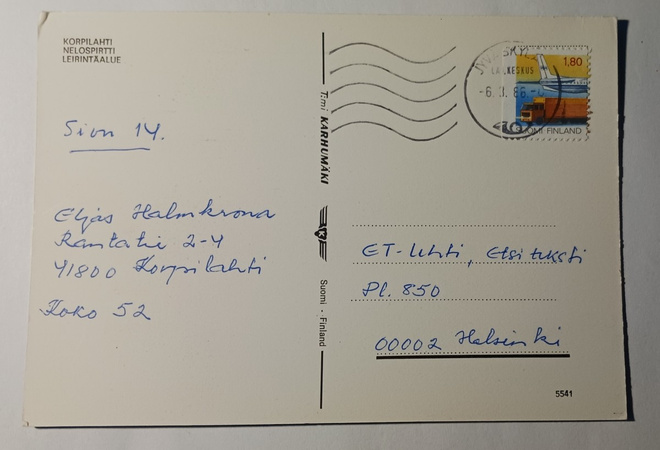 KORPILAHTI
NELOSPIRTTI
LEIRINTÄALUE
Sivu 14.
Eljas Halmkrona
Rantatie 2-4
41800 Korpilahti
Koko 52
Timi KARHUMÄKI
Suomi - Finland
LAJ.KESKUS
1,80
SUOMI FINLAND
ET-lehti, Etsi teksti
Pl. 850
00002 Helsinki
5541